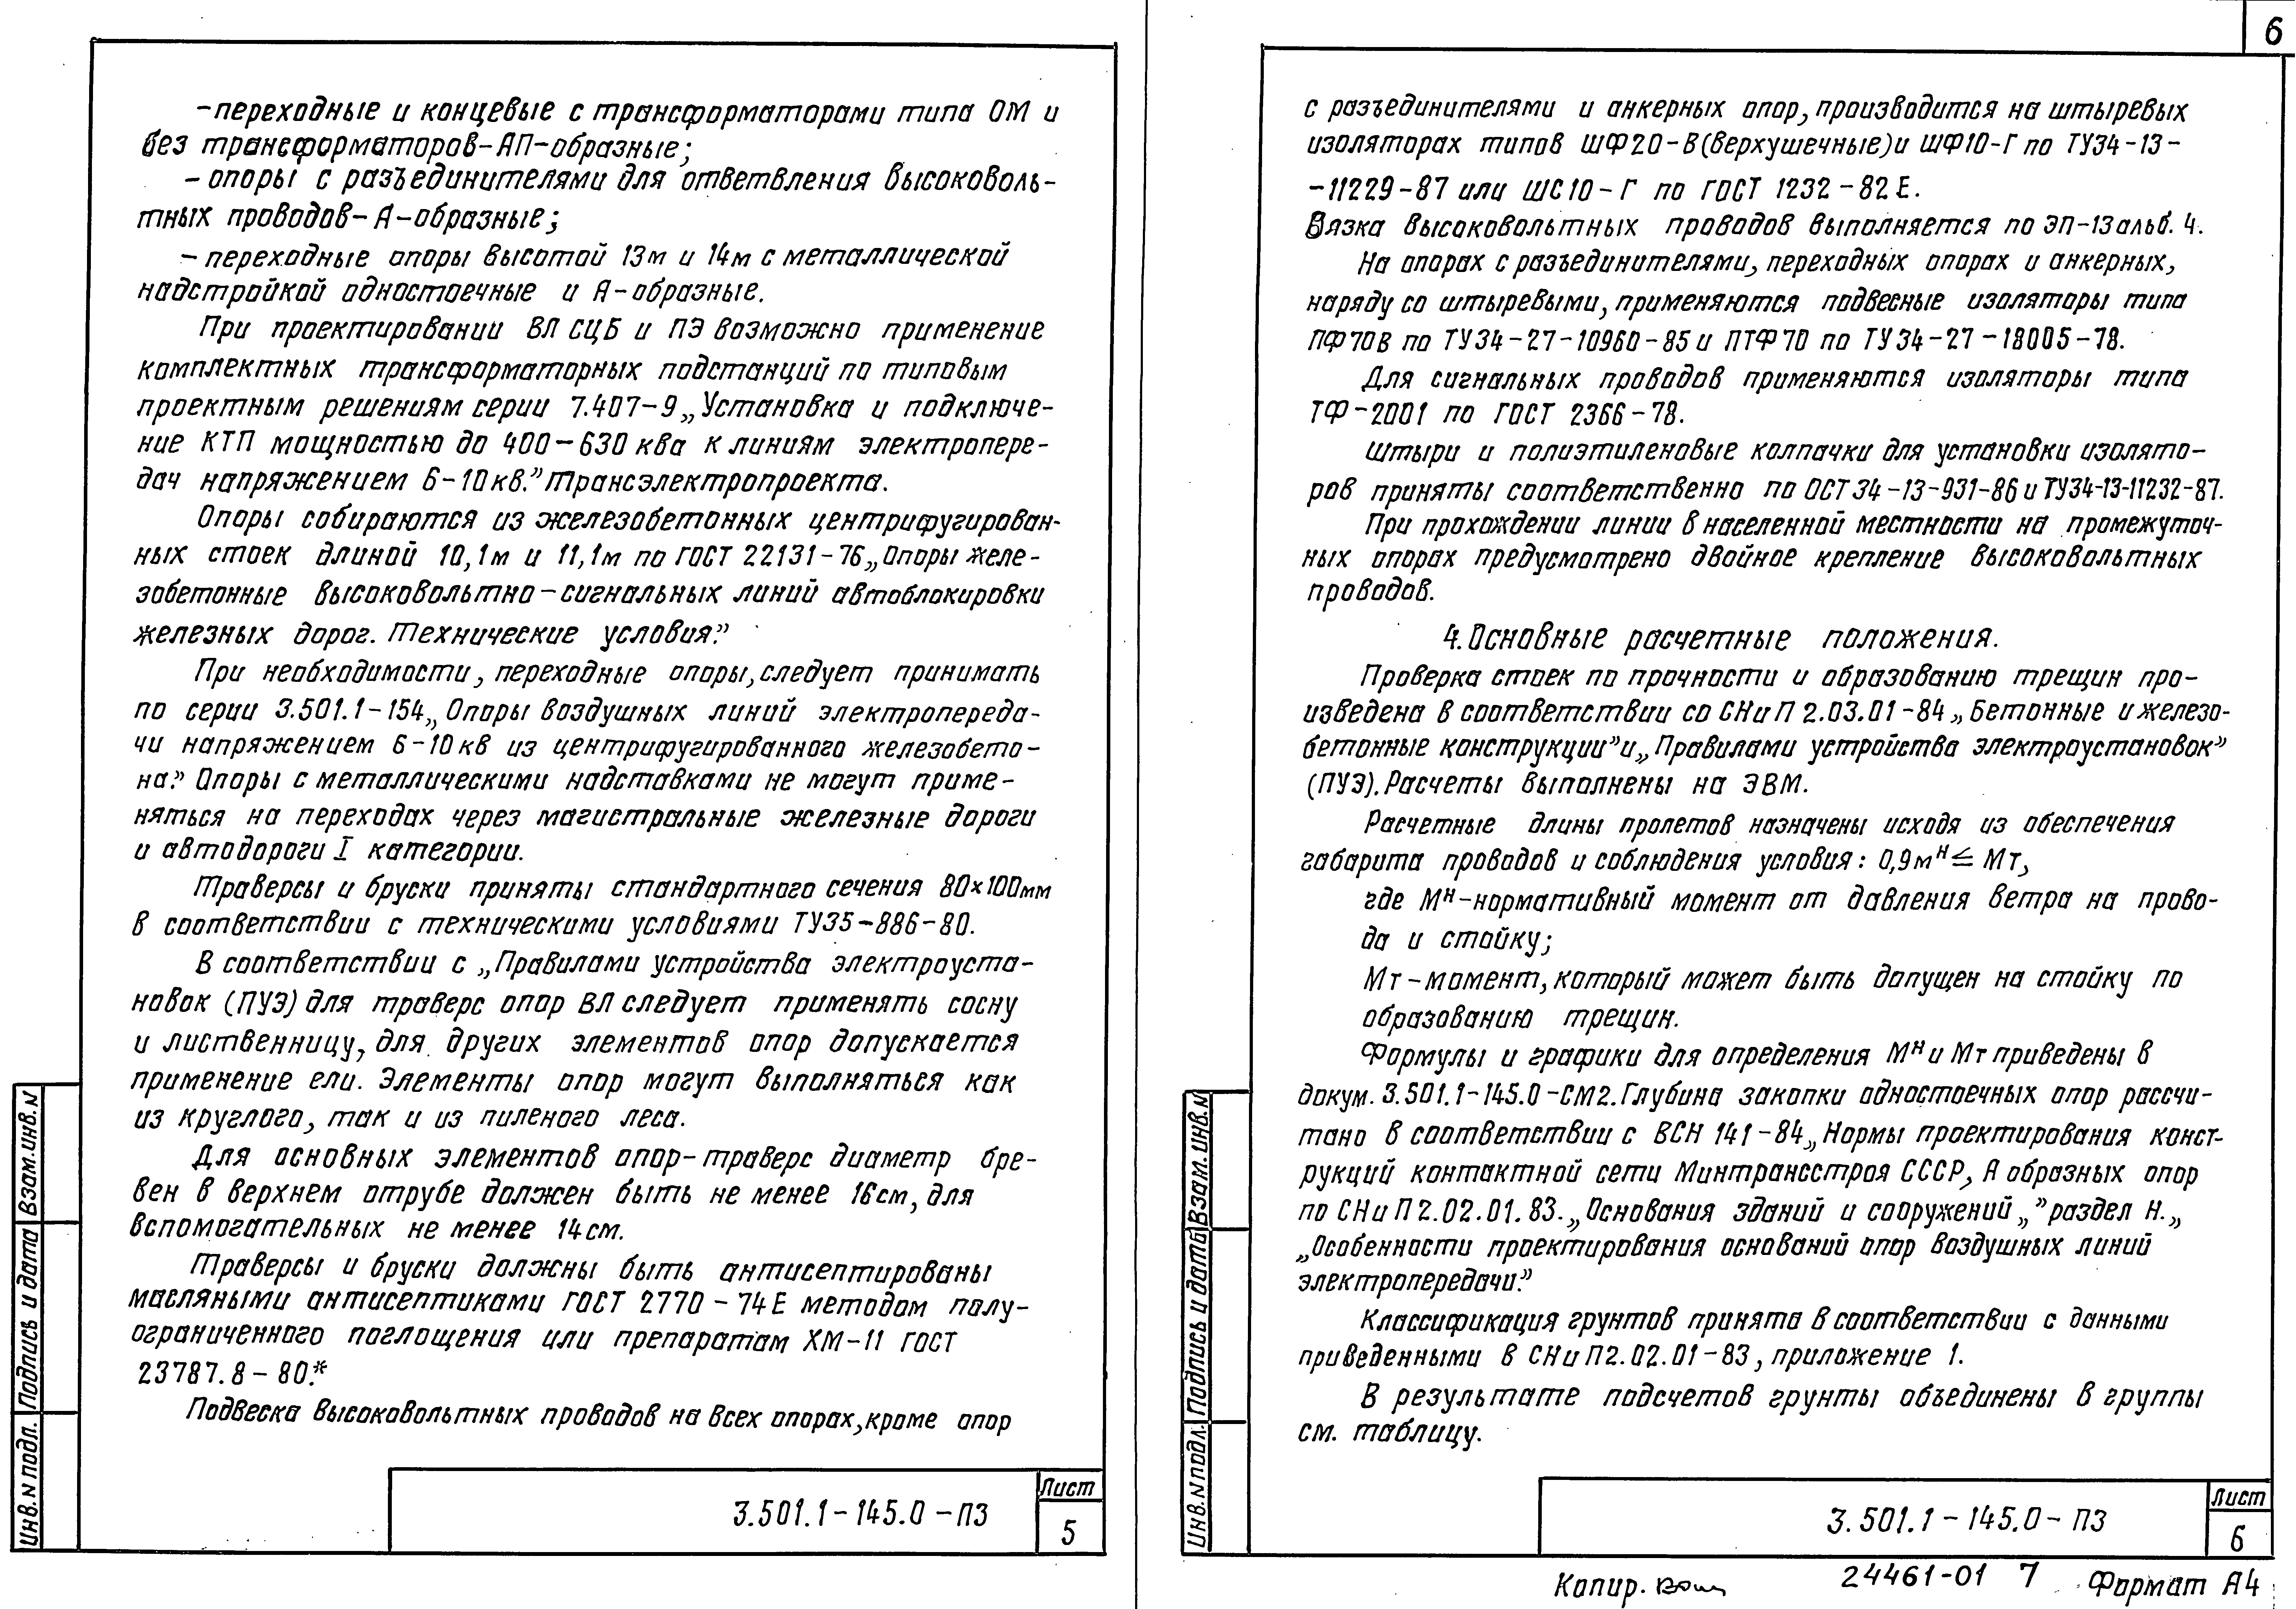 6
-переходные и концевые с трансформаторами типа ОМ и
без трансформаторов-АП-образные;
- опоры с разъединителями для ответвления высоковоль-
тных проводов-А-образные;
- переходные опоры высотой 13м и 14м с металлической
надстройкой одностоечные и А-образные.
При проектировании ВЛ СЦБ и ПЭ возможно применение
комплектных трансформаторных подстанций по типовым
проектным решениям серии 7.407-9 „Установка и подключе-
ние КТП мощностью до 400-630 ква к линиям электропере-
дач напряжением 6-10кв.” Трансэлектропроекта.
Опоры собираются из железобетонных центрифугирован-
ных стоек длиной 10,1м и 11,1м по ГОСТ 22131-76 „Опоры желе-
зобетонные высоковольтно-сигнальных линий автоблокировки
железных дорог. Технические условия.”
При необходимости, переходные опоры, следует принимать
по серии 3.501.1-154 „Опоры воздушных линий электропереда-
чи напряжением 6-10кв из центрифугированного железобето-
на.” Опоры с металлическими надставками не могут приме-
няться на переходах через магистральные железные дороги
и автодороги I категории.
Траверсы и бруски приняты стандартного сечения 80×100мм
в соответствии с техническими условиями ТУ35-886-80.
В соответствии с „Правилами устройства электроуста-
новок (ПУЭ) для траверс опор ВЛ следует применять сосну
и лиственницу, для других элементов опор допускается
применение ели. Элементы опор могут выполняться как
из круглого, так и из пиленого леса.
Для основных элементов опор-траверс диаметр бре-
вен в верхнем отрубе должен быть не менее 16см, для
вспомогательных не менее 14см.
Траверсы и бруски должны быть антисептированы
масляными антисептиками ГОСТ 2770-74Е методом полу-
ограниченного поглощения или препаратам ХМ-11 ГОСТ
23787.8-80.*
Подвеска высоковольтных проводов на всех опорах, кроме опор
Инв. N подл. Подпись и дата Взам. инв. N
3.501.1-145.0-ПЗ
Лист
5
с разъединителями и анкерных опор, производится на штыревых
изоляторах типов ШФ20-В (верхушечные) и ШФ10-Г по ТУ34-13-
-11229-87 или ШС10-Г по ГОСТ 1232-82Е.
Вязка высоковольтных проводов выполняется по ЭП-13 альб. 4.
На опорах с разъединителями, переходных опорах и анкерных,
наряду со штыревыми, применяются подвесные изоляторы типа
ПФ70В по ТУ34-27-10960-85 и ПТФ70 по ТУ34-27-18005-78.
Для сигнальных проводов применяются изоляторы типа
ТФ-2001 по ГОСТ 2366-78.
Штыри и полиэтиленовые колпачки для установки изолято-
ров приняты соответственно по ОСТ 34-13-931-86 и ТУ34-13-11232-87.
При прохождении линии в населенной местности на промежуточ-
ных опорах предусмотрено двойное крепление высоковольтных
проводов.
4. Основные расчетные положения.
Проверка стоек по прочности и образованию трещин про-
изведена в соответствии со СНиП 2.03.01-84 „Бетонные и железо-
бетонные конструкции” и „Правилами устройства электроустановок”
(ПУЭ). Расчеты выполнены на ЭВМ.
Расчетные длины пролетов назначены исходя из обеспечения
габарита проводов и соблюдения условия: 0,9мᴴ ≤ Мт,
где Мᴴ-нормативный момент от давления ветра на прово-
да и стойку;
Мт-момент, который может быть допущен на стойку по
образованию трещин.
Формулы и графики для определения Мᴴ и Мт приведены в
докум. 3.501.1-145.0-СМ2. Глубина закопки одностоечных опор рассчи-
тано в соответствии с ВСН 141-84 „Нормы проектирования конст-
рукций контактной сети Минтрансстроя СССР, А образных опор
по СНиП 2.02.01.83. „Основания зданий и сооружений „” раздел Н. „
„Особенности проектирования оснований опор воздушных линий
электропередачи.”
Классификация грунтов принята в соответствии с данными
приведенными в СНиП 2.02.01-83, приложение 1.
В результате подсчетов грунты объединены в группы
см. таблицу.
Инв. N подл. Подпись и дата Взам. инв. N
3.501.1-145.0-ПЗ
Лист
6
Копир. 24461-01 7 Формат А4